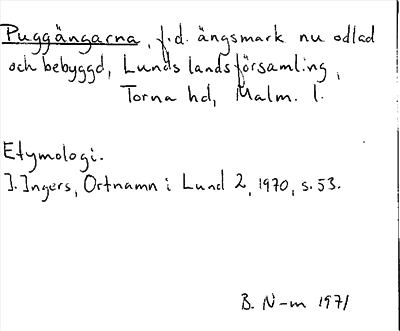 Puggängarna, f.d. ängsmark nu odlad
och bebyggd, Lunds landsförsamling,
Torna hd, Malm. l.
Etymologi.
I. Ingers, Ortnamn i Lund 2, 1970, s. 53.
B. N-m 1971